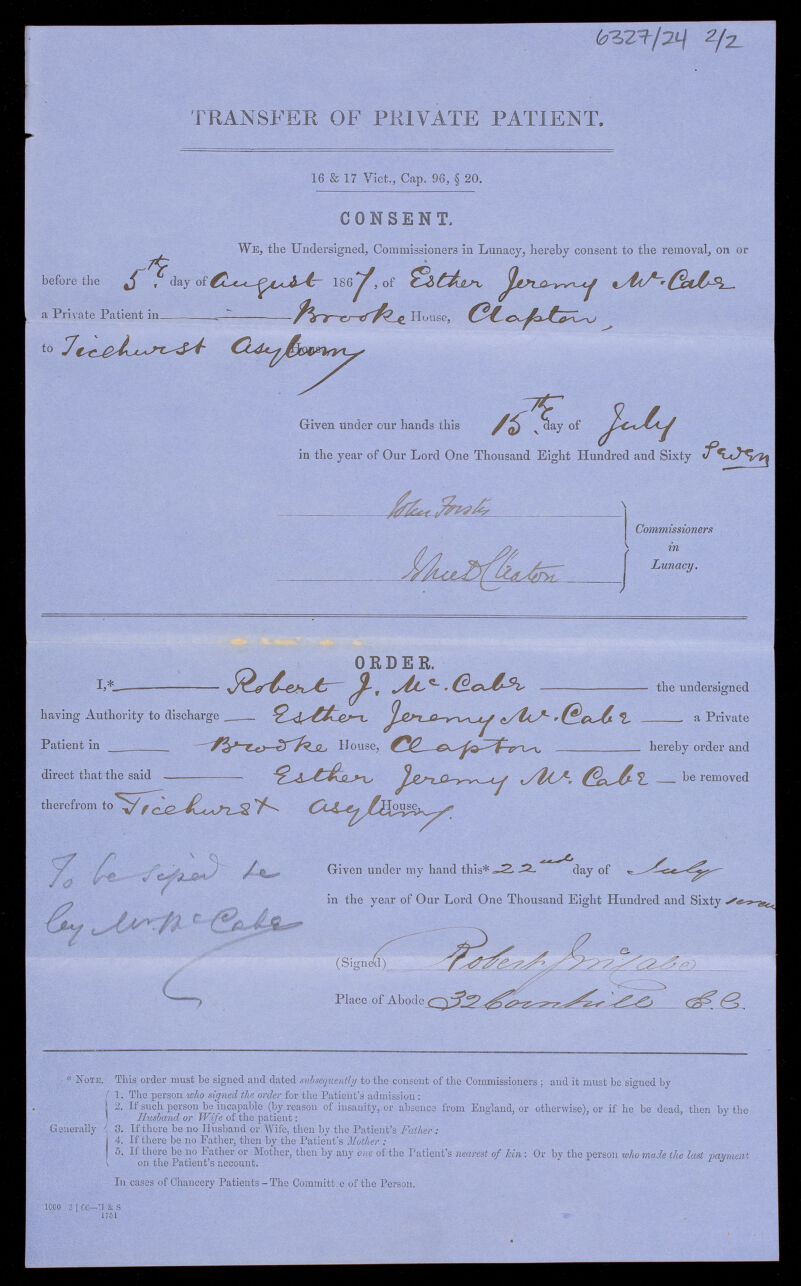 6327/24 2/2
TRANSFER OF PRIVATE PATIENT.
16 & 17 Vict., Cap. 96, § 20.
CONSENT.
WE, the Undersigned, Commissioners in Lunacy, hereby consent to the removal, on or
before the 5th. day of August 1867, of Esther Jeremy Mc. Cabe
a Private Patient in Brooke House, Clapton,
to Ticehurst Asylum House
Given under our hands this 15th. day of July
in the year of Our Lord One Thousand Eight Hundred and Sixty Seven
John Forster
Cleaton
Commissioners
in
Lunacy.
ORDER.
I,* Robert J. Mc. Cabe the undersigned
having Authority to discharge Esther Jeremy Mc. Cabe a Private
Patient in Brooke House, Clapton hereby order and
direct that the said Esther Jeremy Mc. Cabe be removed
therefrom to Ticehurst Asylum House.
To be signed
by Mr. Mc Cabe
Given under my hand this* 22nd day of July
in the year of Our Lord One Thousand Eight Hundred and Sixty seven
(Signed) Robert J McCabe
Place of Abode 32 Cornhill E.C.
* NOTE. This order must be signed and dated subsequently to the consent of the Commissioners; and it must be signed by
1. The person who signed the order for the Patient's admission:
2. If such person be incapable (by reason of insanity, or absence from England, or otherwise), or if he be dead, then by the
Husband or Wife of the patient:
Generally 3. If there be no Husband or Wife, then by the Patient's Father:
4. If there be no Father, then by the Patient's Mother:
5. If there be no Father or Mother, then by any one of the Patient's nearest of kin: Or by the person who made the last payment
on the Patient's account.
In cases of Chancery Patients - The Committ e of the Person.
1000 2 | 66—J & S
1761